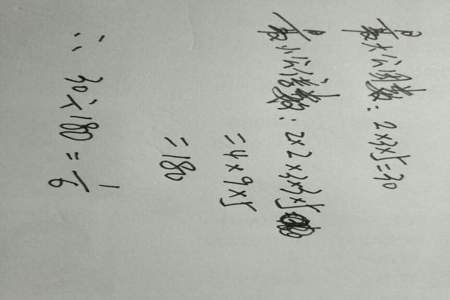 最大公因数: 2×3×5=30
最小公倍数: 2×2×3×3×5
=4×9×5
=180
∴ 30÷180=1/6